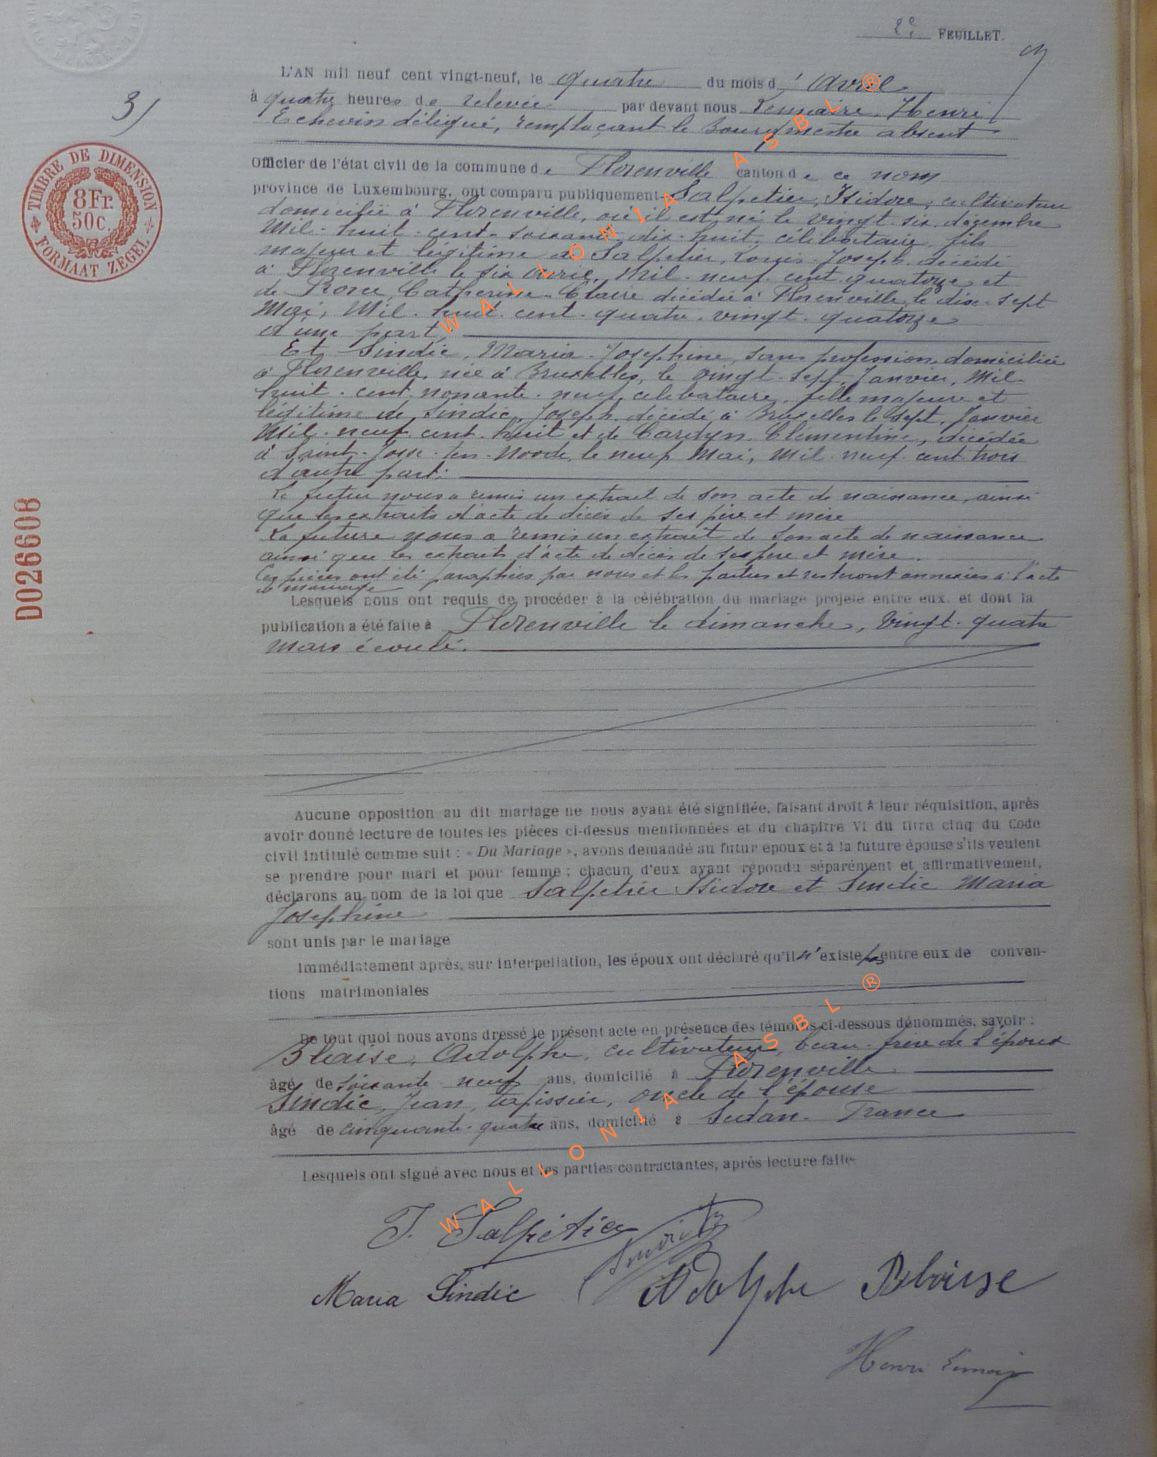 2e FEUILLET.
3
L'AN mil neuf cent vingt-neuf, le quatre du mois d'avril
à quatre heures de relevée par devant nous Henri
Echevin délégué, remplaçant le Bourgmestre absent
Officier de l'état civil de la commune de Florenville canton de ce nom
province de Luxembourg, ont comparu publiquement Salpétier, Isidore, cultivateur
domicilié à Florenville, où il est né le vingt six décembre
Mil huit cent soixante dix-huit, célibataire, fils
majeur et légitime de Salpétier, Louis Joseph décédé
à Florenville le six avril, Mil neuf cent quatorze et
de Catherine Claire décédée à Florenville, le dix-sept
Mai, Mil huit cent quatre vingt quatorze
d'une part,
Et Sindic, Maria Josephine, sans profession, domiciliée
à Florenville, née à Bruxelles, le vingt sept Janvier, Mil
huit cent nonante neuf, célibataire, fille majeure et
légitime de Sindic, Joseph décédé à Bruxelles le sept Janvier
Mil neuf cent huit et de Clémentine, décédée
à Saint Josse ten Noode, le neuf Mai, Mil neuf cent trois
d'autre part.
Le futur nous a remis un extrait de son acte de naissance, ainsi
que les extraits d'acte de décès de ses père et mère
La future nous a remis un extrait de son acte de naissance
ainsi que les extraits d'acte de décès de ses père et mère.
Ces pièces ont été paraphées par nous et les parties et resteront annexées à l'acte
de mariage
Lesquels nous ont requis de procéder à la célébration du mariage projeté entre eux, et dont la
publication a été faite à Florenville le dimanche, vingt-quatre
mars écoulé.
Aucune opposition au dit mariage ne nous ayant été signifiée, faisant droit à leur réquisition, après
avoir donné lecture de toutes les pièces ci-dessus mentionnées et du chapitre VI du titre cinq du Code
civil intitulé comme suit : « Du Mariage », avons demandé au futur époux et à la future épouse s'ils veulent
se prendre pour mari et pour femme ; chacun d'eux ayant répondu séparément et affirmativement,
déclarons au nom de la loi que Salpétier Isidore et Sindic Maria
Josephine
sont unis par le mariage
Immédiatement après, sur interpellation, les époux ont déclaré qu'il n'existe pas entre eux de conven-
tions matrimoniales
De tout quoi nous avons dressé le présent acte en présence des témoins ci-dessous dénommés, savoir :
Blaise, Adolphe, cultivateur, beau-frère de l'époux
âgé de soixante neuf ans, domicilié à Florenville
Sindic, Jean, tapissier, oncle de l'épouse
âgé de cinquante-quatre ans, domicilié à Sedan-France
Lesquels ont signé avec nous et les parties contractantes, après lecture faite.
I. Salpétier
Maria Sindic Adolphe Blaise
Henri
TIMBRE DE DIMENSION
8 Fr.
50c.
FORMAAT ZEGEL
D026608
WALLONIA ASBL ®
WALLONIA ASBL ®